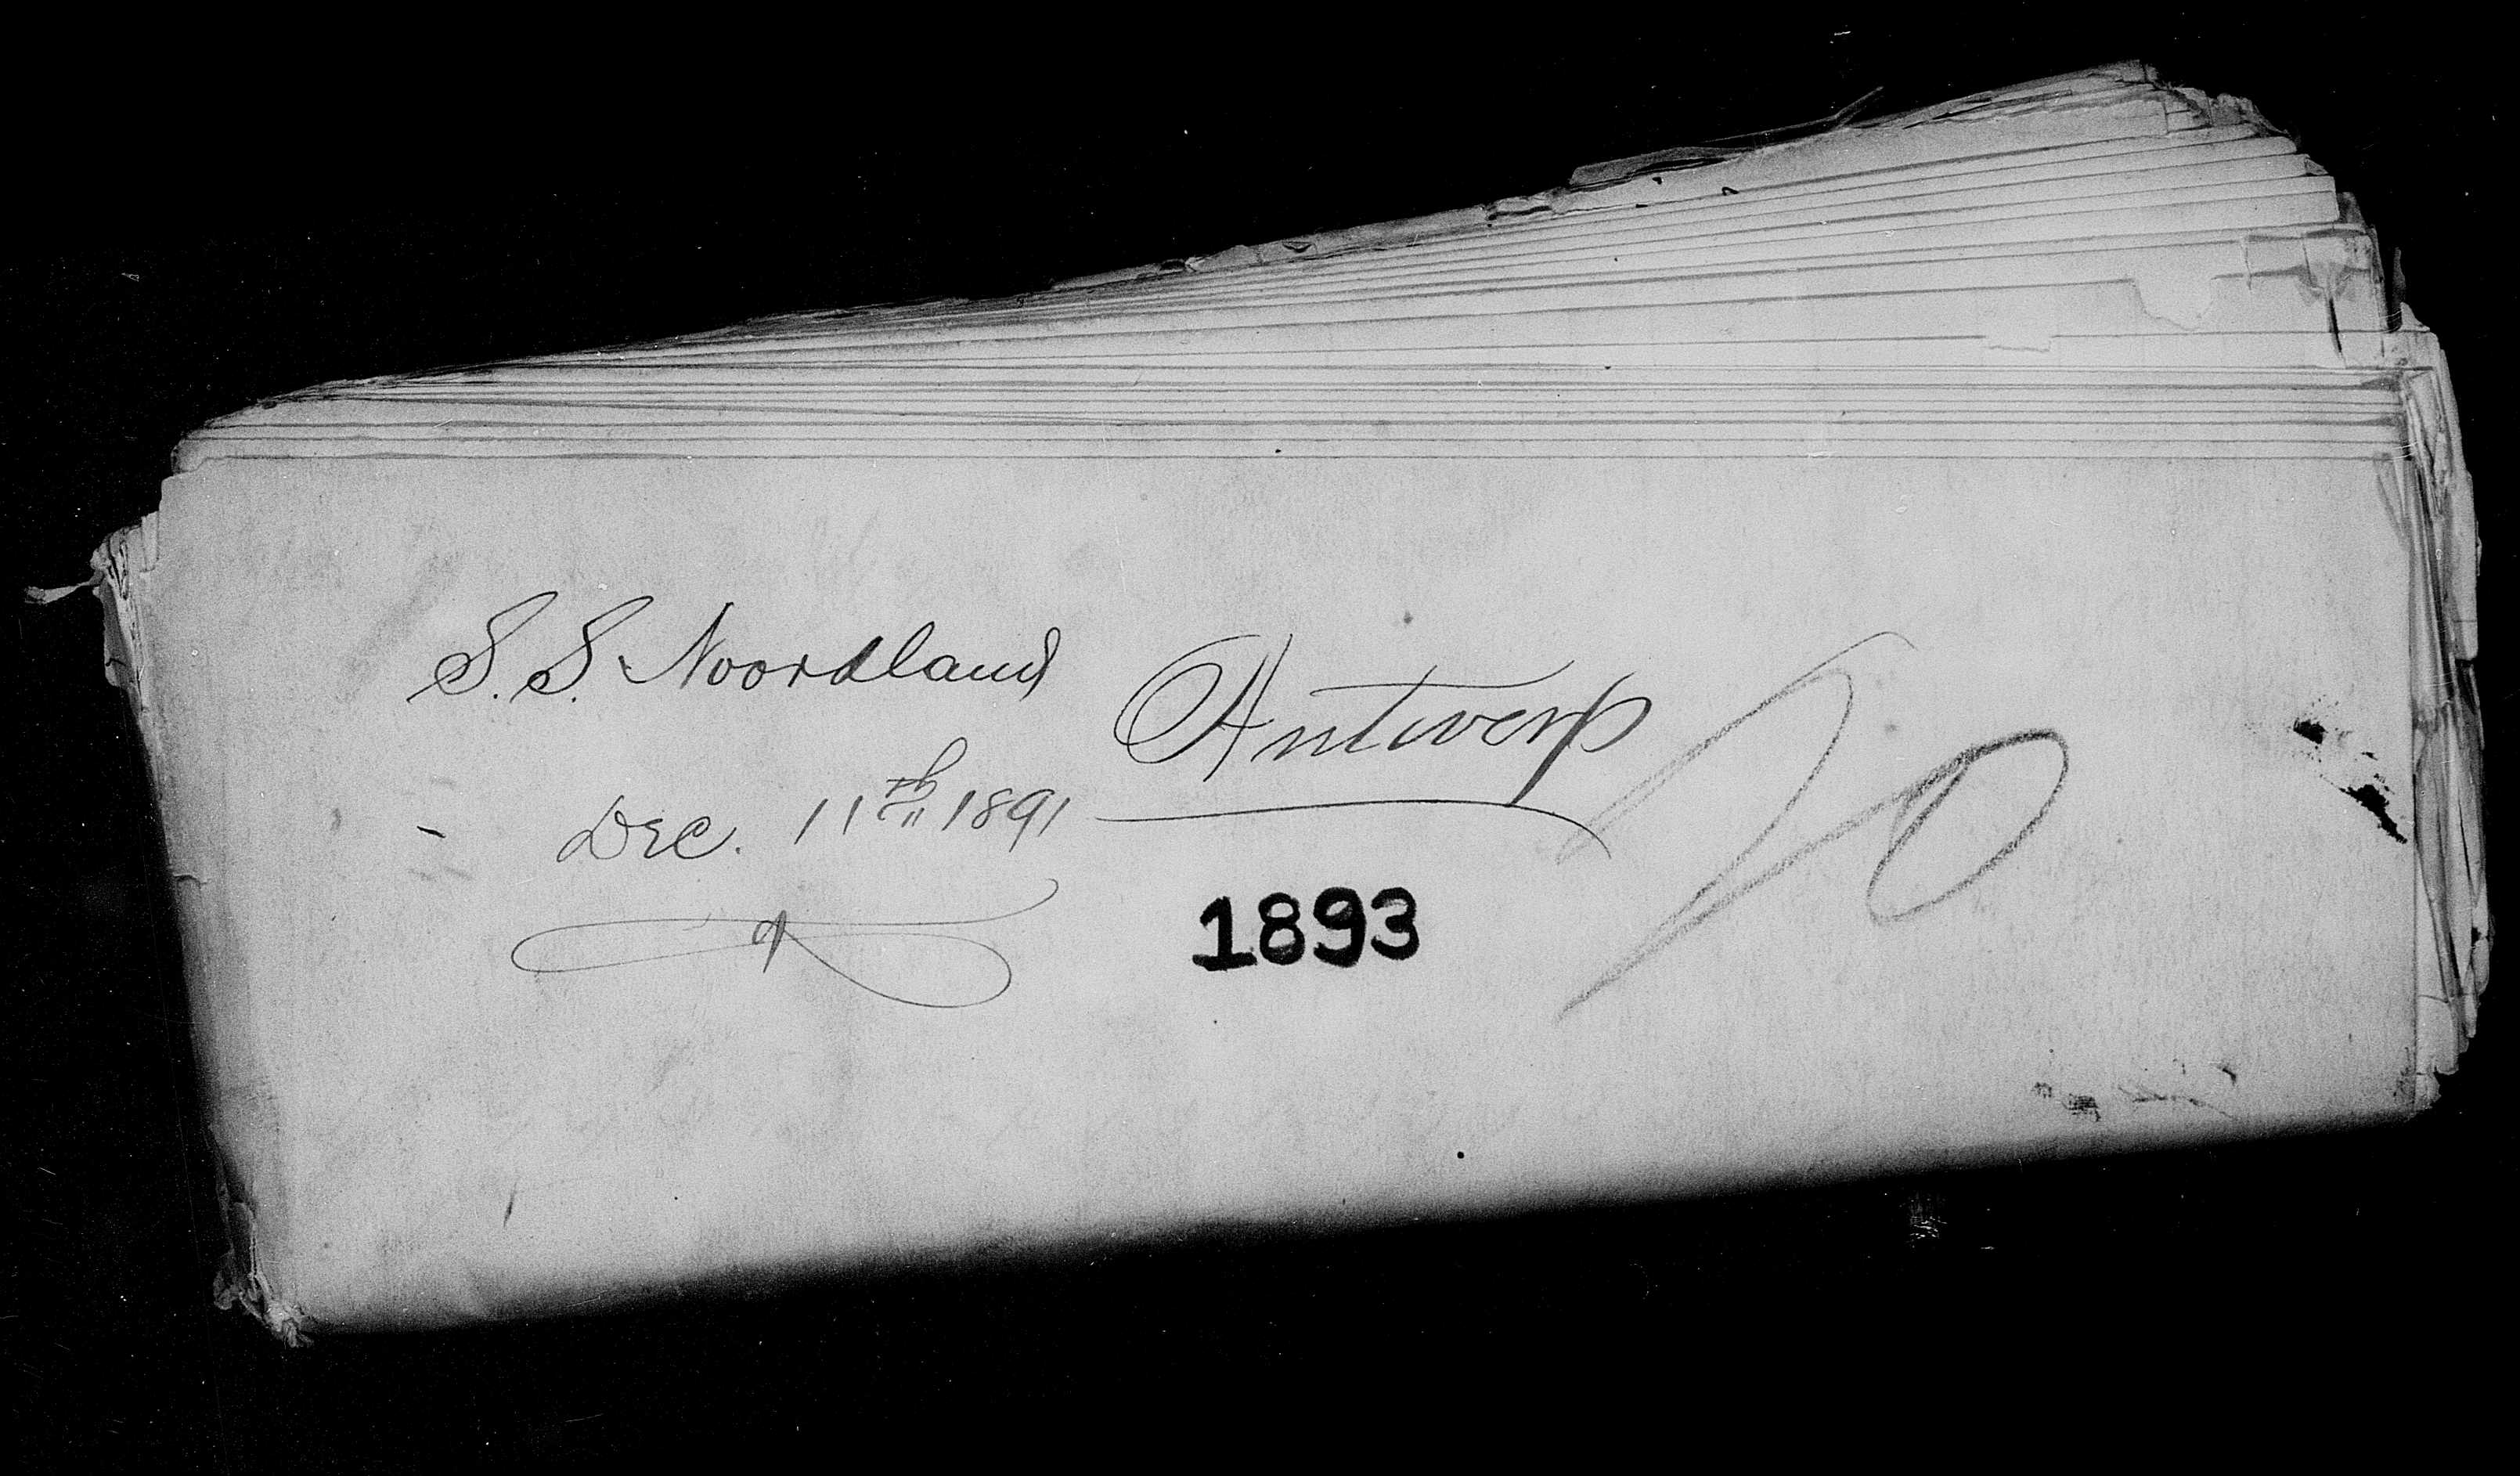 S.S. Noordland
Antwerp
Dec. 11th 1891
1893